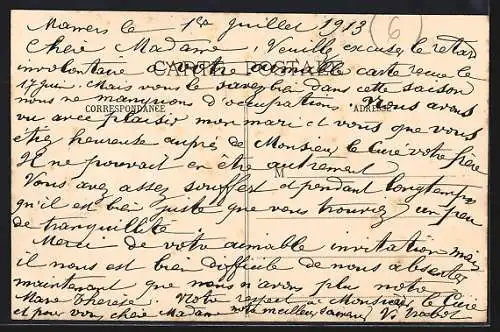 Mamers le 1er Juillet 1913
(6)
Chère Madame, Veuillez excuser le retard
CARTE POSTALE
involontaire à votre aimable carte reçue le
17 juin. Mais vous le savez bien dans cette saison
nous ne manquons d'occupations. Nous avons
CORRESPONDANCE
ADRESSE
vu avec plaisir mon mari et vous que vous
êtes heureuse auprès de Monsieur le Curé votre frère
Il ne pouvait en être autrement
M
Vous avez assez souffert et pendant longtemps
qu'il est bien juste que vous trouviez un peu
de tranquillité.
Merci de votre aimable invitation mais
il nous est bien difficile de nous absenter
maintenant que nous n'avons plus notre
Marie Thérèse. Notre respect à Monsieur le Curé
et pour vous, chère Madame nos meilleurs